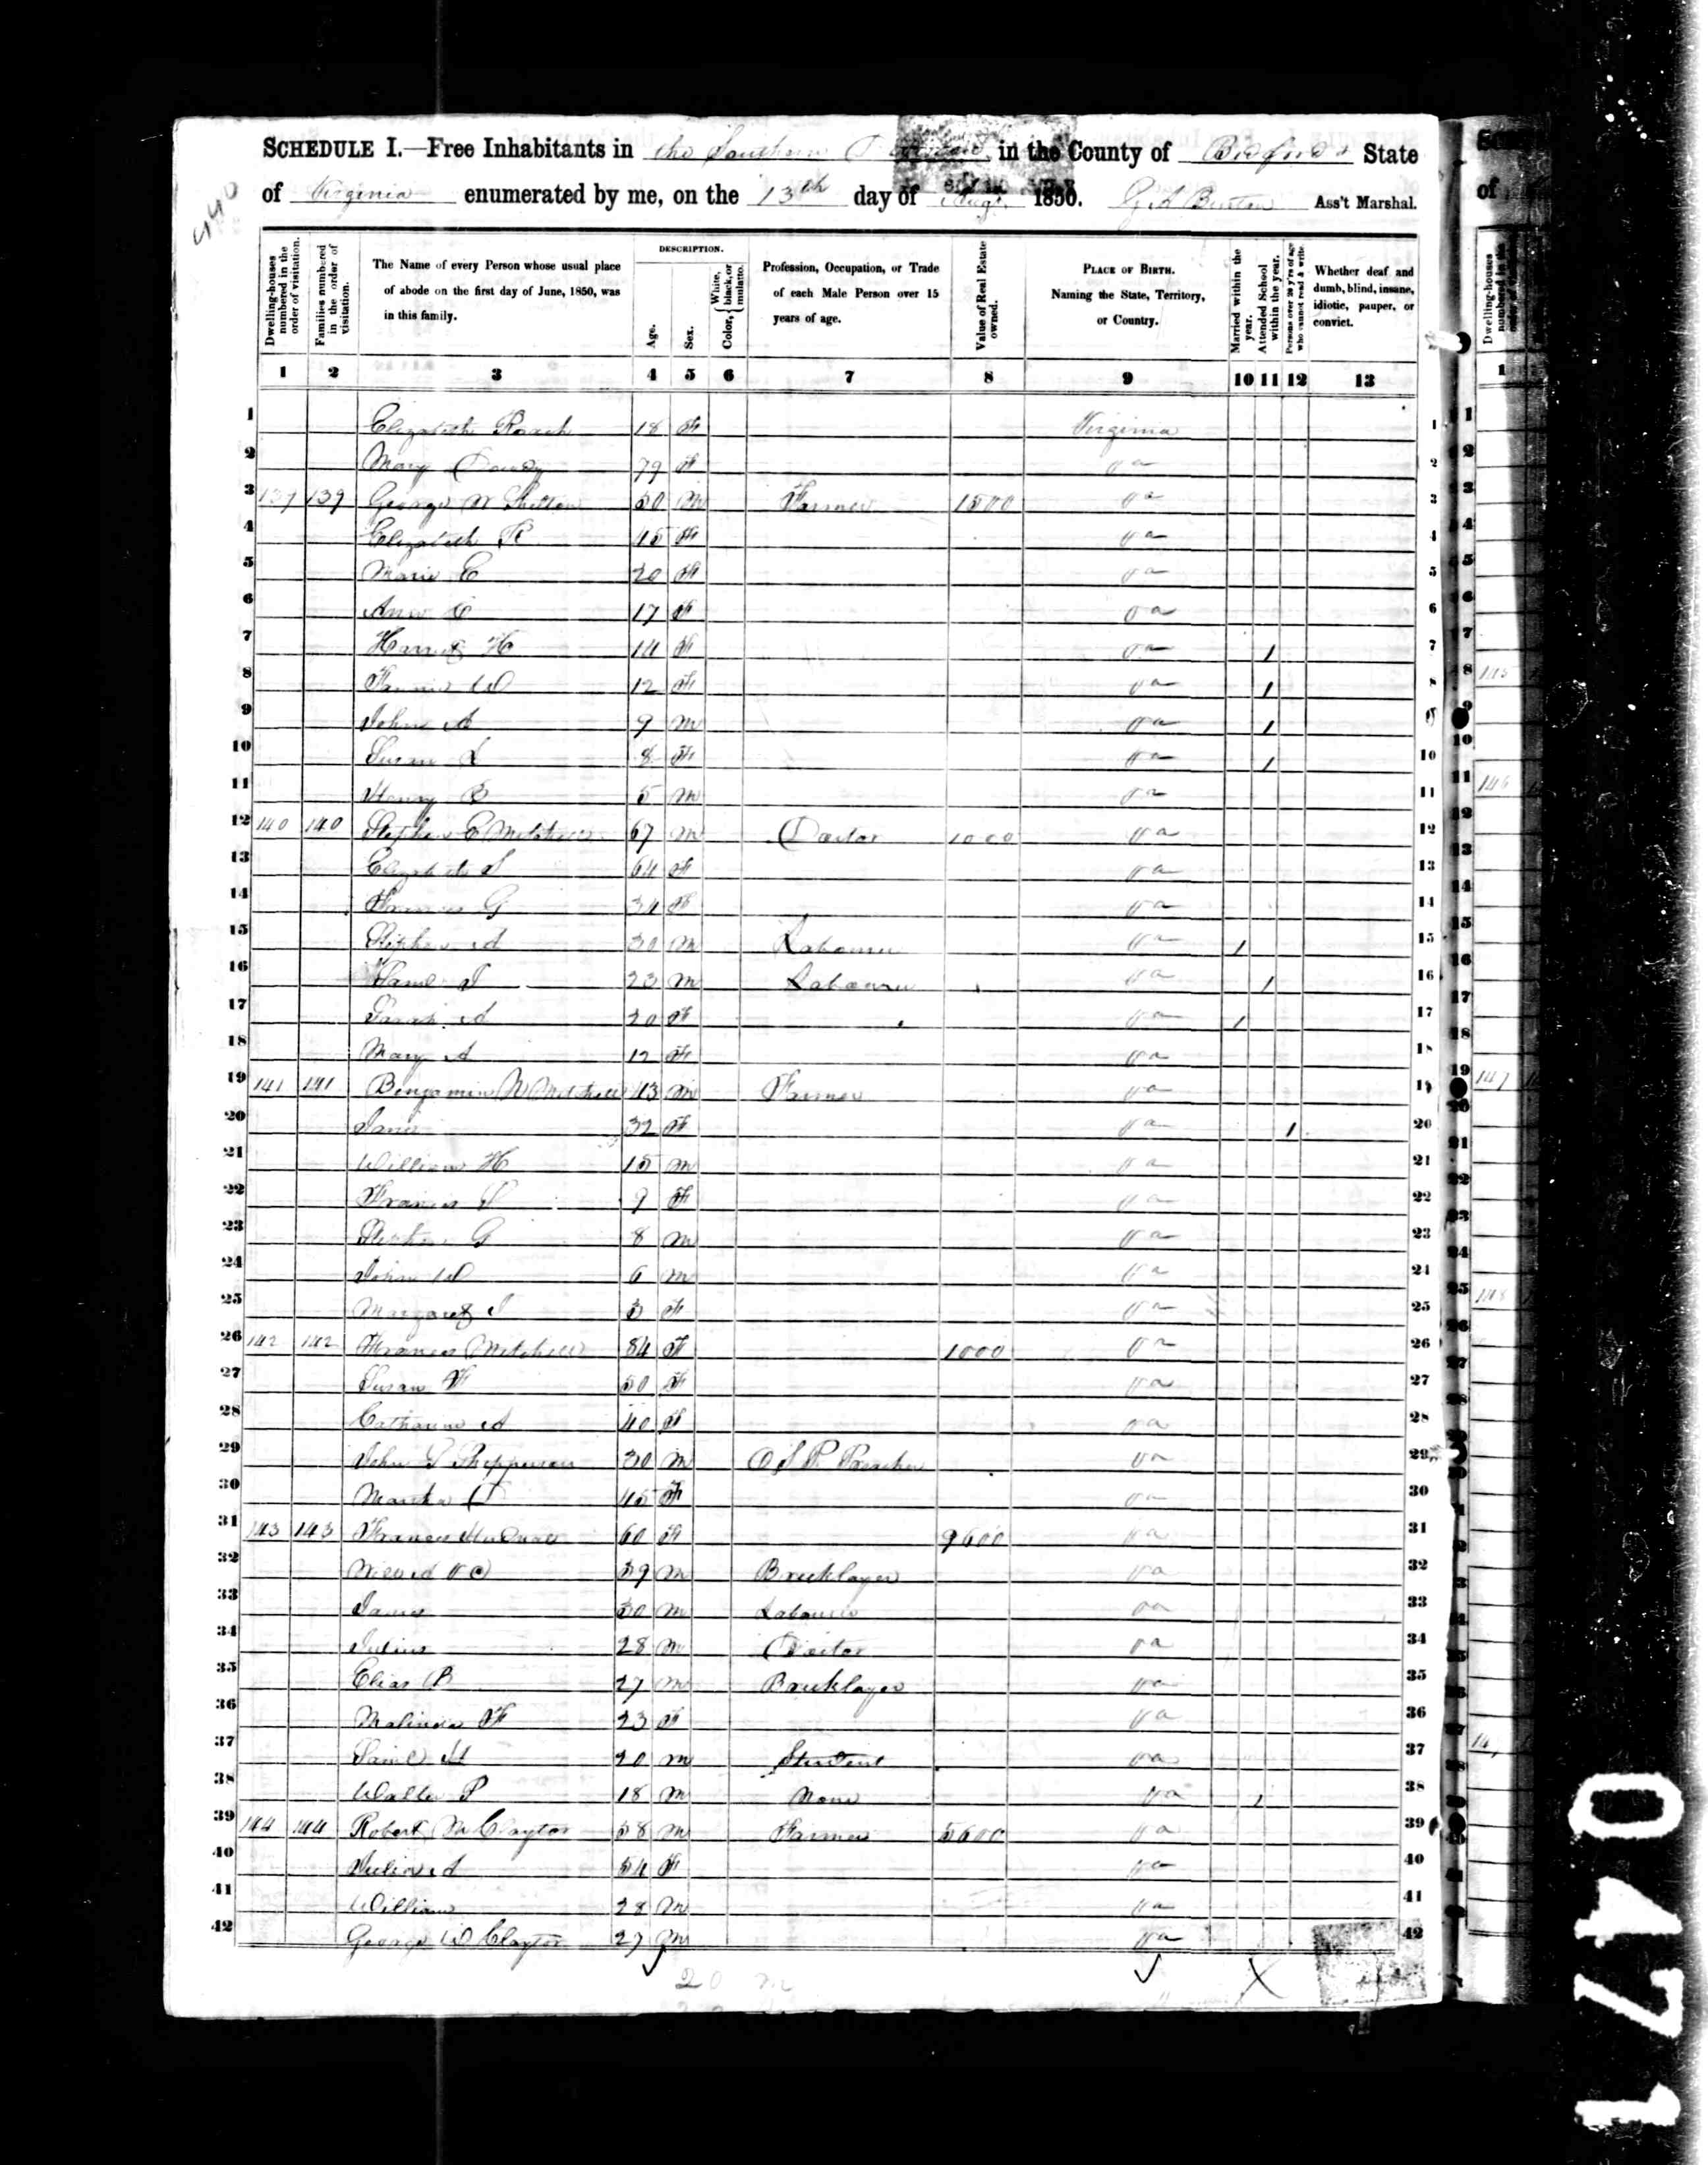 440
SCHEDULE I.—Free Inhabitants in the Southern in the County of Bedford State
of Virginia enumerated by me, on the 13th day of Augt 1850. Ass't Marshal.
Dwelling-houses numbered in the order of visitation.
Families numbered in the order of visitation.
The Name of every Person whose usual place of abode on the first day of June, 1850, was in this family.
DESCRIPTION.
Age.
Sex.
Color, White, black, or mulatto.
Profession, Occupation, or Trade of each Male Person over 15 years of age.
Value of Real Estate owned.
PLACE OF BIRTH. Naming the State, Territory, or Country.
Married within the year.
Attended School within the year.
Persons over 20 y'rs of age who cannot read & write.
Whether deaf and dumb, blind, insane, idiotic, pauper, or convict.
1 2 3 4 5 6 7 8 9 10 11 12 13
1 Elizabeth Roach 18 F Virginia 1
2 Mary Dowdy 79 F Va 2
3 139 139 George W Shelton 50 M Farmer 1500 Va 3
4 Elizabeth R 45 F Va 4
5 Maria C 20 F Va 5
6 Ann E 17 F Va 6
7 Harriet H 14 F Va 1 7
8 Fannie W 12 F Va 1 8
9 John A 9 M Va 1 9
10 Susan L 8 F Va 1 10
11 Henry B 5 M Va 11
12 140 140 Stephen C Mitchell 67 M Doctor 1000 Va 12
13 Elizabeth S 64 F Va 13
14 Frances G 34 F Va 14
15 Stephen A 30 M Labourer Va 1 15
16 Saml J 23 M Labourer Va 1 16
17 Sarah A 20 F Va 1 17
18 Mary A 12 F Va 18
19 141 141 Benjamin N Mitchell 43 M Farmer Va 19
20 Jane 32 F Va 1 20
21 William H 15 M Va 21
22 Frances S 9 F Va 22
23 Stephen G 8 M Va 23
24 John W 6 M Va 24
25 Margaret J 3 F Va 25
26 142 142 Frances Mitchell 84 F 1000 Va 26
27 Susan F 50 F Va 27
28 Catharine A 40 F Va 28
29 John G Shepperson 30 M O S P Preacher Va 29
30 Martha 45 F Va 30
31 143 143 Frances 60 F 9600 Va 31
32 39 M Bricklayer Va 32
33 James 30 M Labourer Va 33
34 Julius 28 M Doctor Va 34
35 Elias B 27 M Bricklayer Va 35
36 Malinda F 23 F Va 36
37 Saml H 20 M Student Va 37
38 Walter P 18 M None Va 1 38
39 144 144 Robert M Claytor 58 M Farmer 5600 Va 39
40 Julia A 54 F Va 40
41 William 28 M Va 41
42 George W Claytor 27 M Va 42
20 m
0471